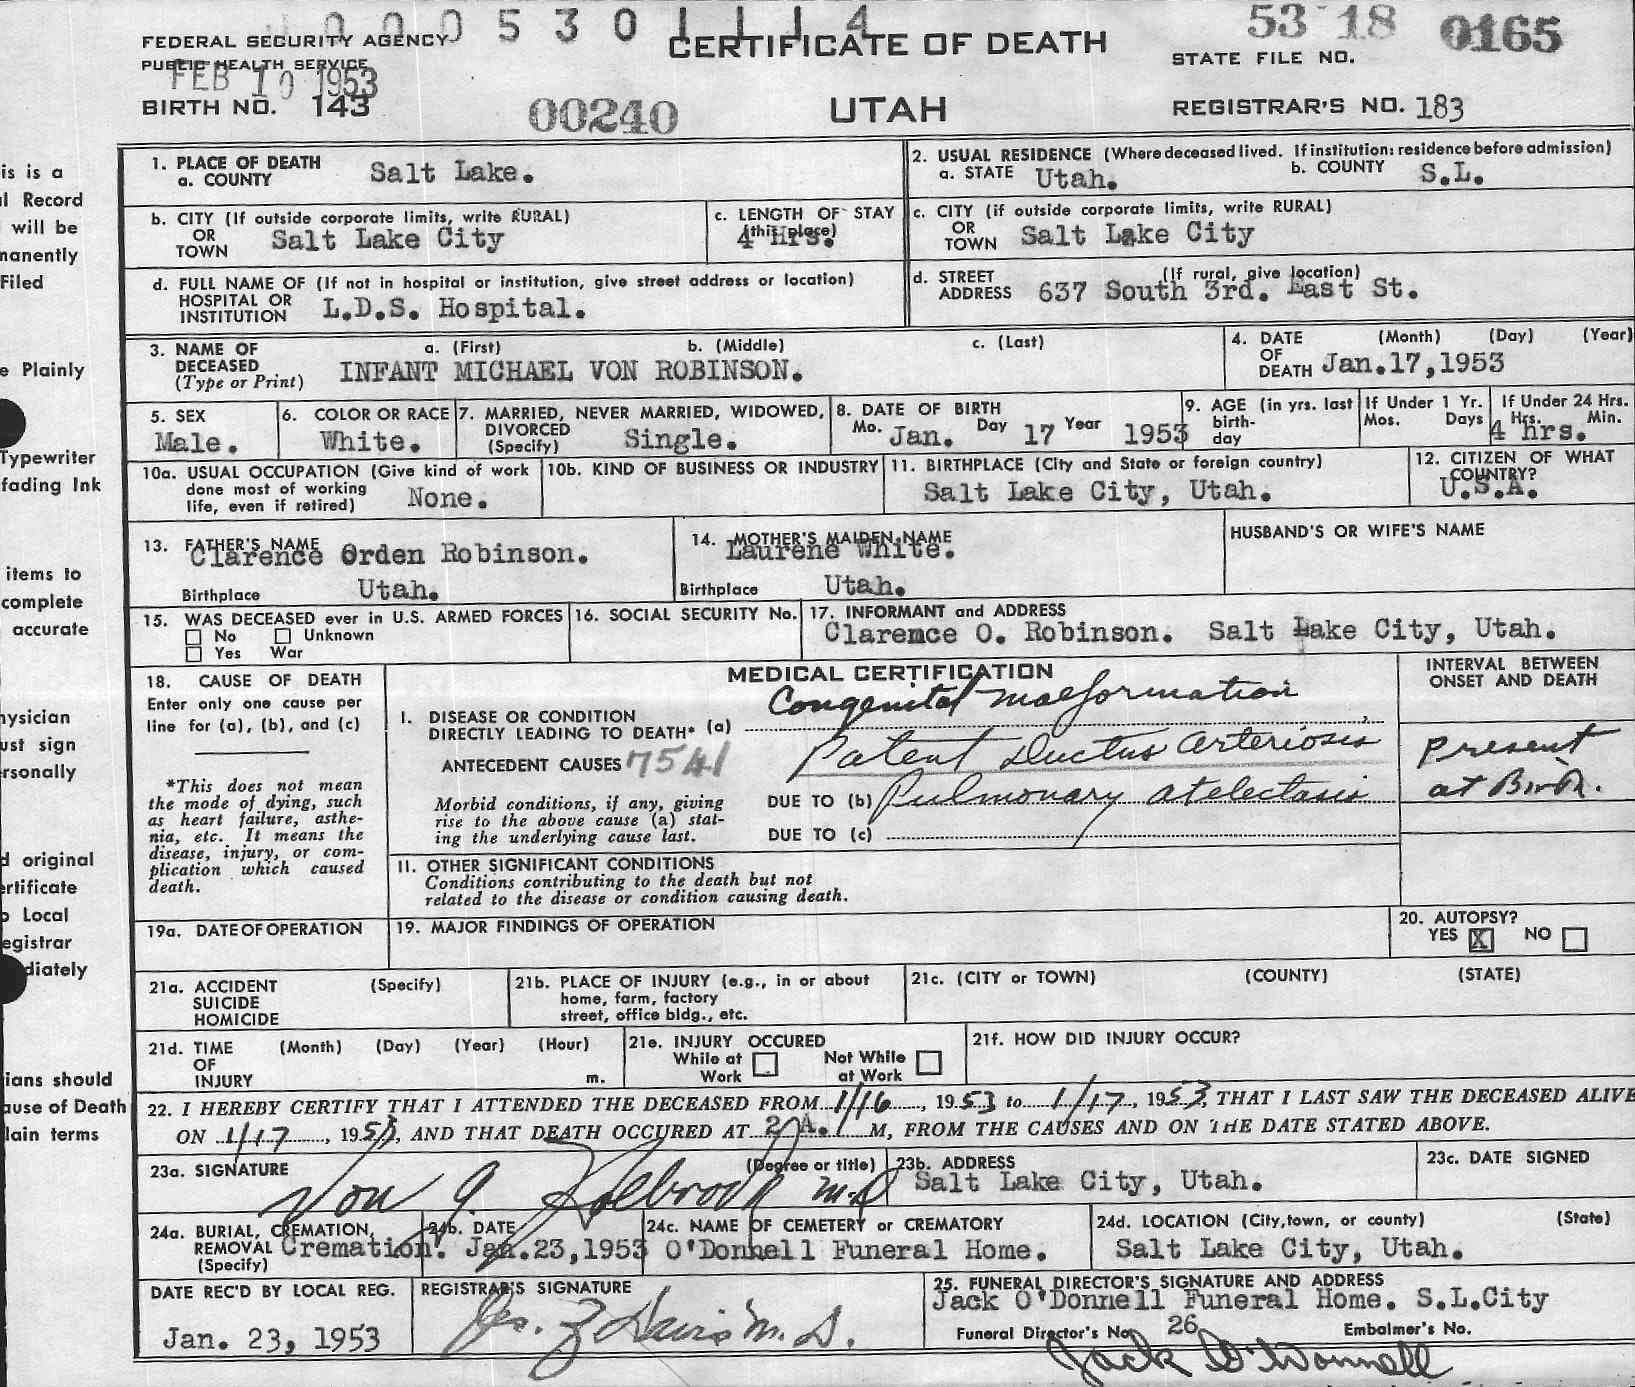 0 0 0 5 3 0 1 1 1 4
FEDERAL SECURITY AGENCY
PUBLIC HEALTH SERVICE
FEB 10 1953
BIRTH NO. 143
00240
CERTIFICATE OF DEATH
UTAH
53 18 0165
STATE FILE NO.
REGISTRAR'S NO. 183
is is a
l Record
will be
manently
Filed
e Plainly
Typewriter
fading Ink
items to
complete
accurate
hysician
ust sign
rsonally
d original
ertificate
o Local
egistrar
diately
ians should
ause of Death
lain terms
1. PLACE OF DEATH
a. COUNTY Salt Lake.
2. USUAL RESIDENCE (Where deceased lived. If institution: residence before admission)
a. STATE Utah. b. COUNTY S.L.
b. CITY (If outside corporate limits, write RURAL)
OR
TOWN Salt Lake City
c. LENGTH OF STAY
(this place)
4 Hrs.
c. CITY (if outside corporate limits, write RURAL)
OR
TOWN Salt Lake City
d. FULL NAME OF (If not in hospital or institution, give street address or location)
HOSPITAL OR
INSTITUTION L.D.S. Hospital.
d. STREET (If rural, give location)
ADDRESS 637 South 3rd. East St.
3. NAME OF a. (First) b. (Middle) c. (Last)
DECEASED
(Type or Print) INFANT MICHAEL VON ROBINSON.
4. DATE (Month) (Day) (Year)
OF
DEATH Jan.17,1953
5. SEX
Male.
6. COLOR OR RACE
White.
7. MARRIED, NEVER MARRIED, WIDOWED,
DIVORCED
(Specify) Single.
8. DATE OF BIRTH
Mo. Jan. Day 17 Year 1953
9. AGE (in yrs. last
birth-
day
If Under 1 Yr.
Mos. Days
If Under 24 Hrs.
Hrs. Min.
4 hrs.
10a. USUAL OCCUPATION (Give kind of work
done most of working
life, even if retired) None.
10b. KIND OF BUSINESS OR INDUSTRY
11. BIRTHPLACE (City and State or foreign country)
Salt Lake City, Utah.
12. CITIZEN OF WHAT
COUNTRY?
U.S.A.
13. FATHER'S NAME
Clarence Orden Robinson.
Birthplace Utah.
14. MOTHER'S MAIDEN NAME
Laurene White.
Birthplace Utah.
HUSBAND'S OR WIFE'S NAME
15. WAS DECEASED ever in U.S. ARMED FORCES
No Unknown
Yes War
16. SOCIAL SECURITY No.
17. INFORMANT and ADDRESS
Clarence O. Robinson. Salt Lake City, Utah.
18. CAUSE OF DEATH
Enter only one cause per
line for (a), (b), and (c)
*This does not mean
the mode of dying, such
as heart failure, asthe-
nia, etc. It means the
disease, injury, or com-
plication which caused
death.
MEDICAL CERTIFICATION
I. DISEASE OR CONDITION
DIRECTLY LEADING TO DEATH* (a) Congenital malformation,
Patent Ductus Arteriosis
ANTECEDENT CAUSES 7541
Morbid conditions, if any, giving
rise to the above cause (a) stat-
ing the underlying cause last.
DUE TO (b) Pulmonary atelectasis
DUE TO (c)
INTERVAL BETWEEN
ONSET AND DEATH
present
at Birth.
II. OTHER SIGNIFICANT CONDITIONS
Conditions contributing to the death but not
related to the disease or condition causing death.
19a. DATE OF OPERATION
19. MAJOR FINDINGS OF OPERATION
20. AUTOPSY?
YES X NO
21a. ACCIDENT (Specify)
SUICIDE
HOMICIDE
21b. PLACE OF INJURY (e.g., in or about
home, farm, factory
street, office bldg., etc.
21c. (CITY or TOWN) (COUNTY) (STATE)
21d. TIME (Month) (Day) (Year) (Hour)
OF
INJURY m.
21e. INJURY OCCURED
While at Not While
Work at Work
21f. HOW DID INJURY OCCUR?
22. I HEREBY CERTIFY THAT I ATTENDED THE DECEASED FROM 1/16, 1953 to 1/17, 1953, THAT I LAST SAW THE DECEASED ALIVE
ON 1/17, 1953, AND THAT DEATH OCCURED AT 2 A. M, FROM THE CAUSES AND ON THE DATE STATED ABOVE.
23a. SIGNATURE (Degree or title)
Von G. Holbrook M.D
23b. ADDRESS
Salt Lake City, Utah.
23c. DATE SIGNED
24a. BURIAL, CREMATION,
REMOVAL Cremation.
(Specify)
24b. DATE
Jan.23,1953
24c. NAME OF CEMETERY or CREMATORY
O'Donnell Funeral Home.
24d. LOCATION (City, town, or county) (State)
Salt Lake City, Utah.
DATE REC'D BY LOCAL REG.
Jan. 23, 1953
REGISTRAR'S SIGNATURE
M. D.
25. FUNERAL DIRECTOR'S SIGNATURE AND ADDRESS
Jack O'Donnell Funeral Home. S.L.City
Funeral Director's No. 26 Embalmer's No.
Jack O'Donnell